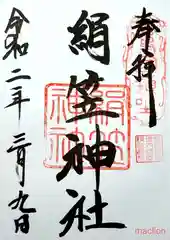 奉拝
絹笠神社
令和二年三月九日
macllon